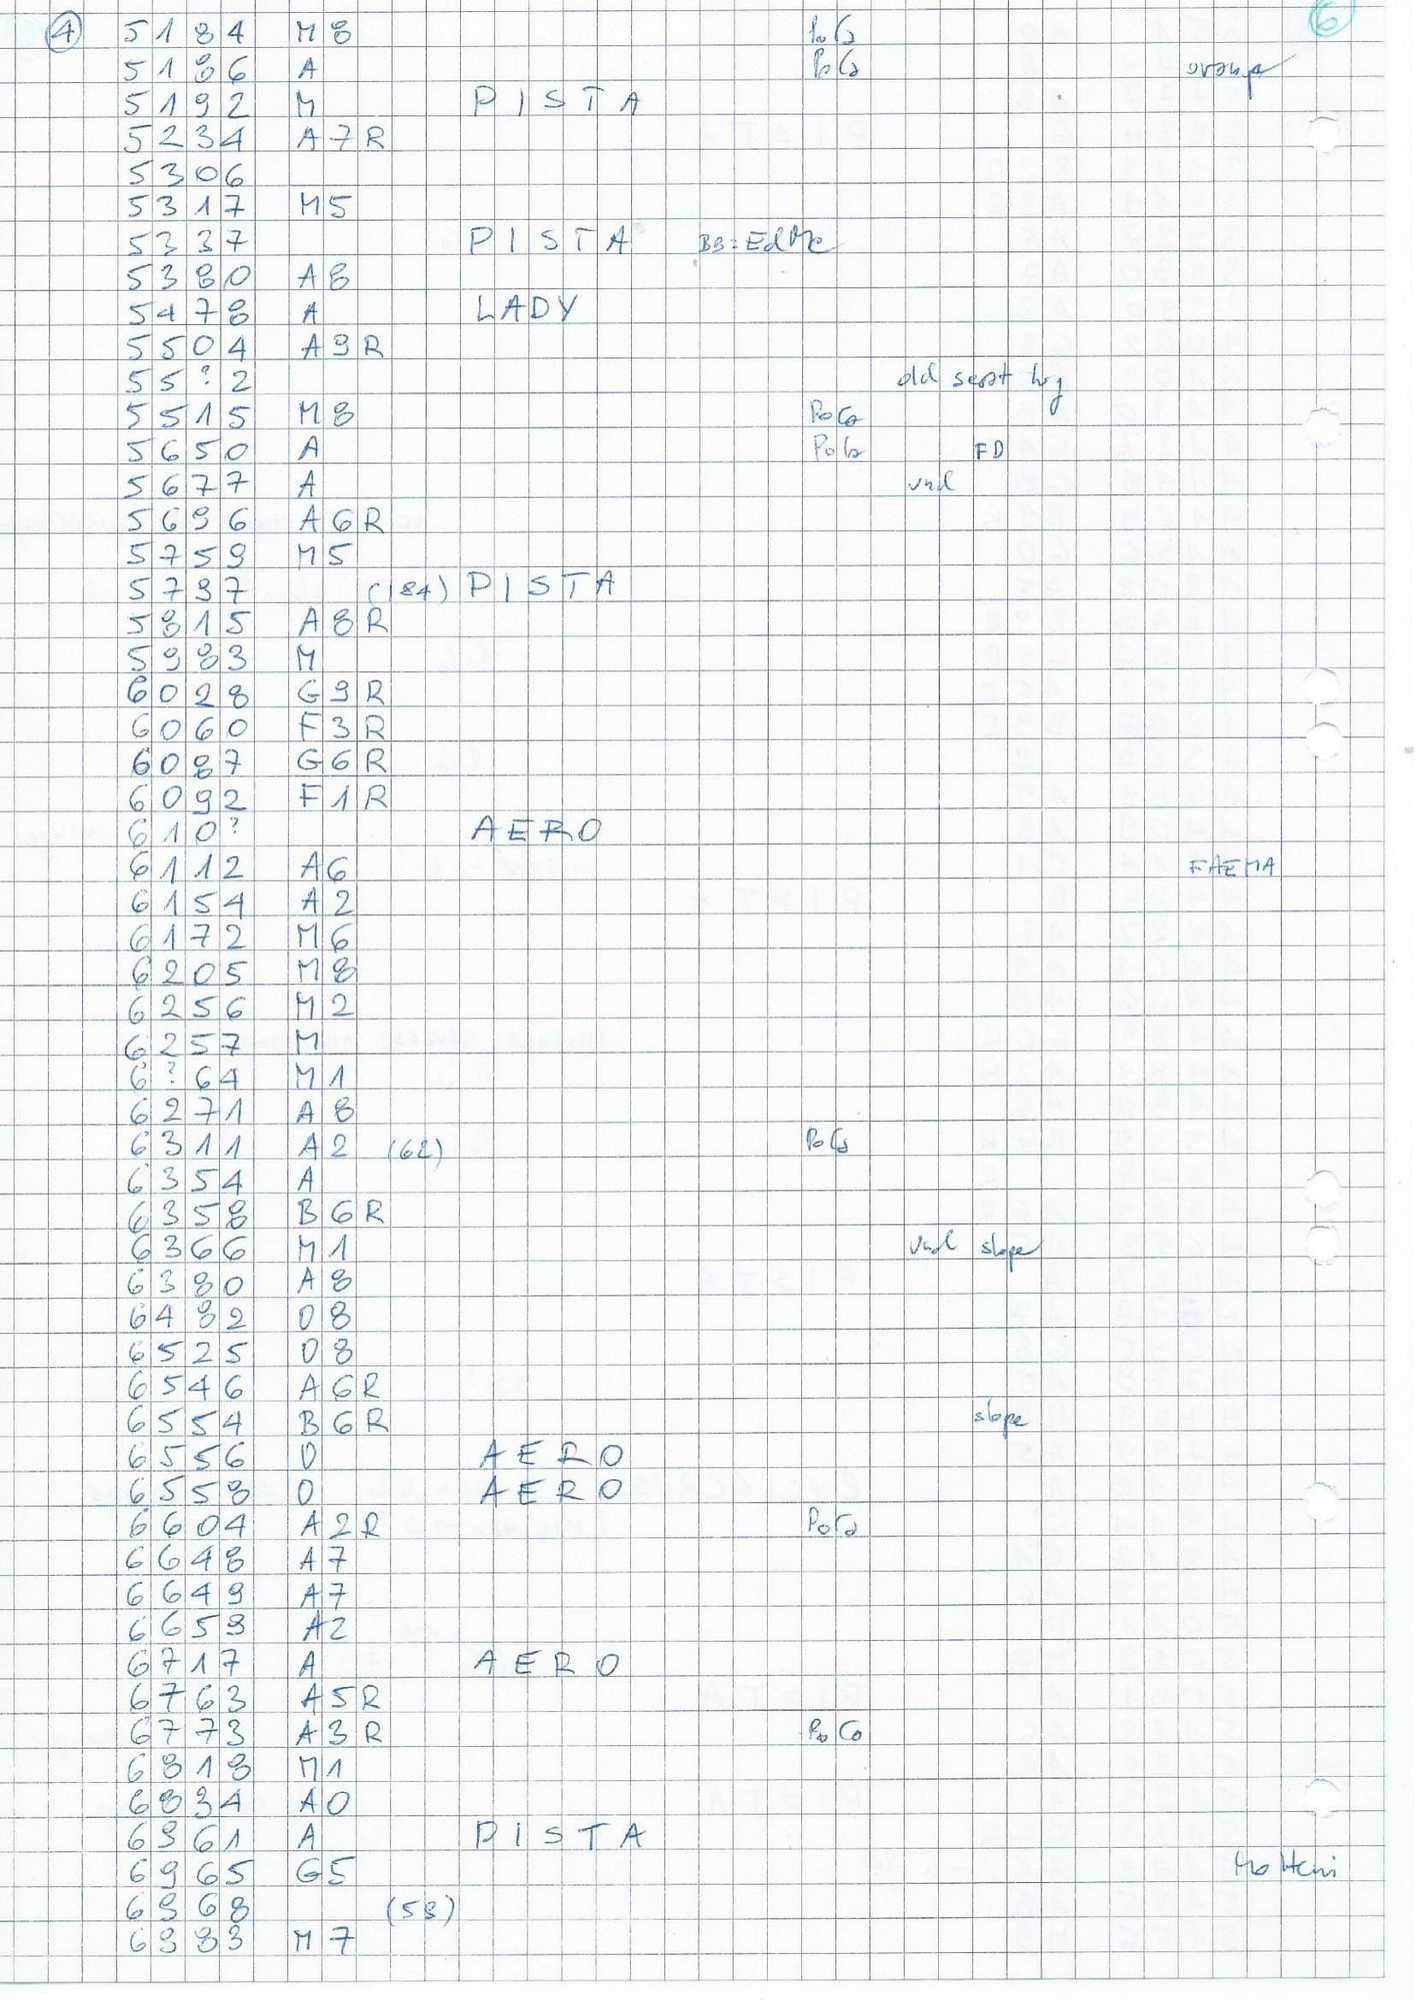 4 5184 M8 PoCo 6
5186 A PoCo
5192 M PISTA
5234 A7R
5306
5317 M5
5337 PISTA BB=EdMe
5380 A8
5478 A LADY
5504 A9R
55?2 old seat lug
5515 M8 PoCo
5650 A PoCo FD
5677 A und
5696 A6R
5759 M5
5797 (184) PISTA
5815 A8R
5983 M
6028 G9R
6060 F3R
6087 G6R
6092 F1R
610? AERO
6112 A6 FAEMA
6154 A2
6172 M6
6205 M8
6256 M2
6257 M
6?64 M1
6271 A8
6311 A2 (62) PoCo
6354 A
6358 B6R
6366 M1 und slope
6380 A8
6482 O8
6525 O8
6546 A6R
6554 B6R slope
6556 O AERO
6558 O AERO
6604 A2R PoCo
6648 A7
6649 A7
6659 A2
6717 A AERO
6763 A5R
6773 A3R PoCo
6818 M1
6834 A0
6961 A PISTA
6965 G5 Molteni
6968 (58)
6983 M7